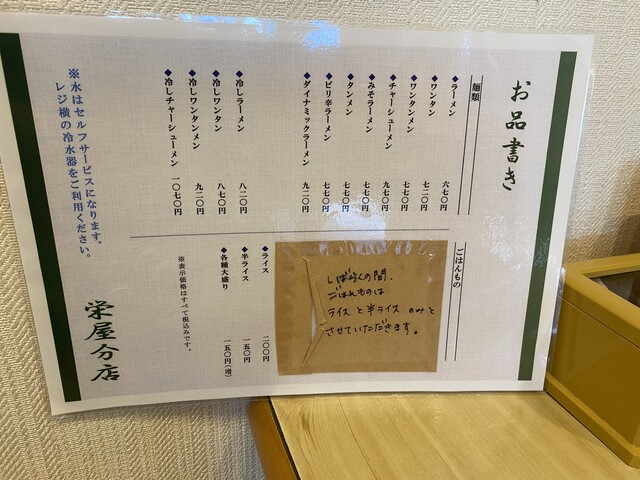 お品書き
麺類
◆ラーメン 六七〇円
◆ワンタン 七二〇円
◆ワンタンメン 七七〇円
◆チャーシューメン 九七〇円
◆みそラーメン 七七〇円
◆タンメン 七七〇円
◆ピリ辛ラーメン 七七〇円
◆ダイナミックラーメン 九二〇円
◆冷しラーメン 八二〇円
◆冷しワンタン 八七〇円
◆冷しワンタンメン 九二〇円
◆冷しチャーシューメン 一〇七〇円
ごはんもの
しばらくの間、
ごはんものは
ライスと半ライスのみと
させていただきます。
◆ライス 二〇〇円
◆半ライス 一五〇円
◆各種大盛り 一五〇円(増)
※表示価格はすべて税込みです。
※水はセルフサービスになります。
レジ横の冷水器をご利用ください。
栄屋分店